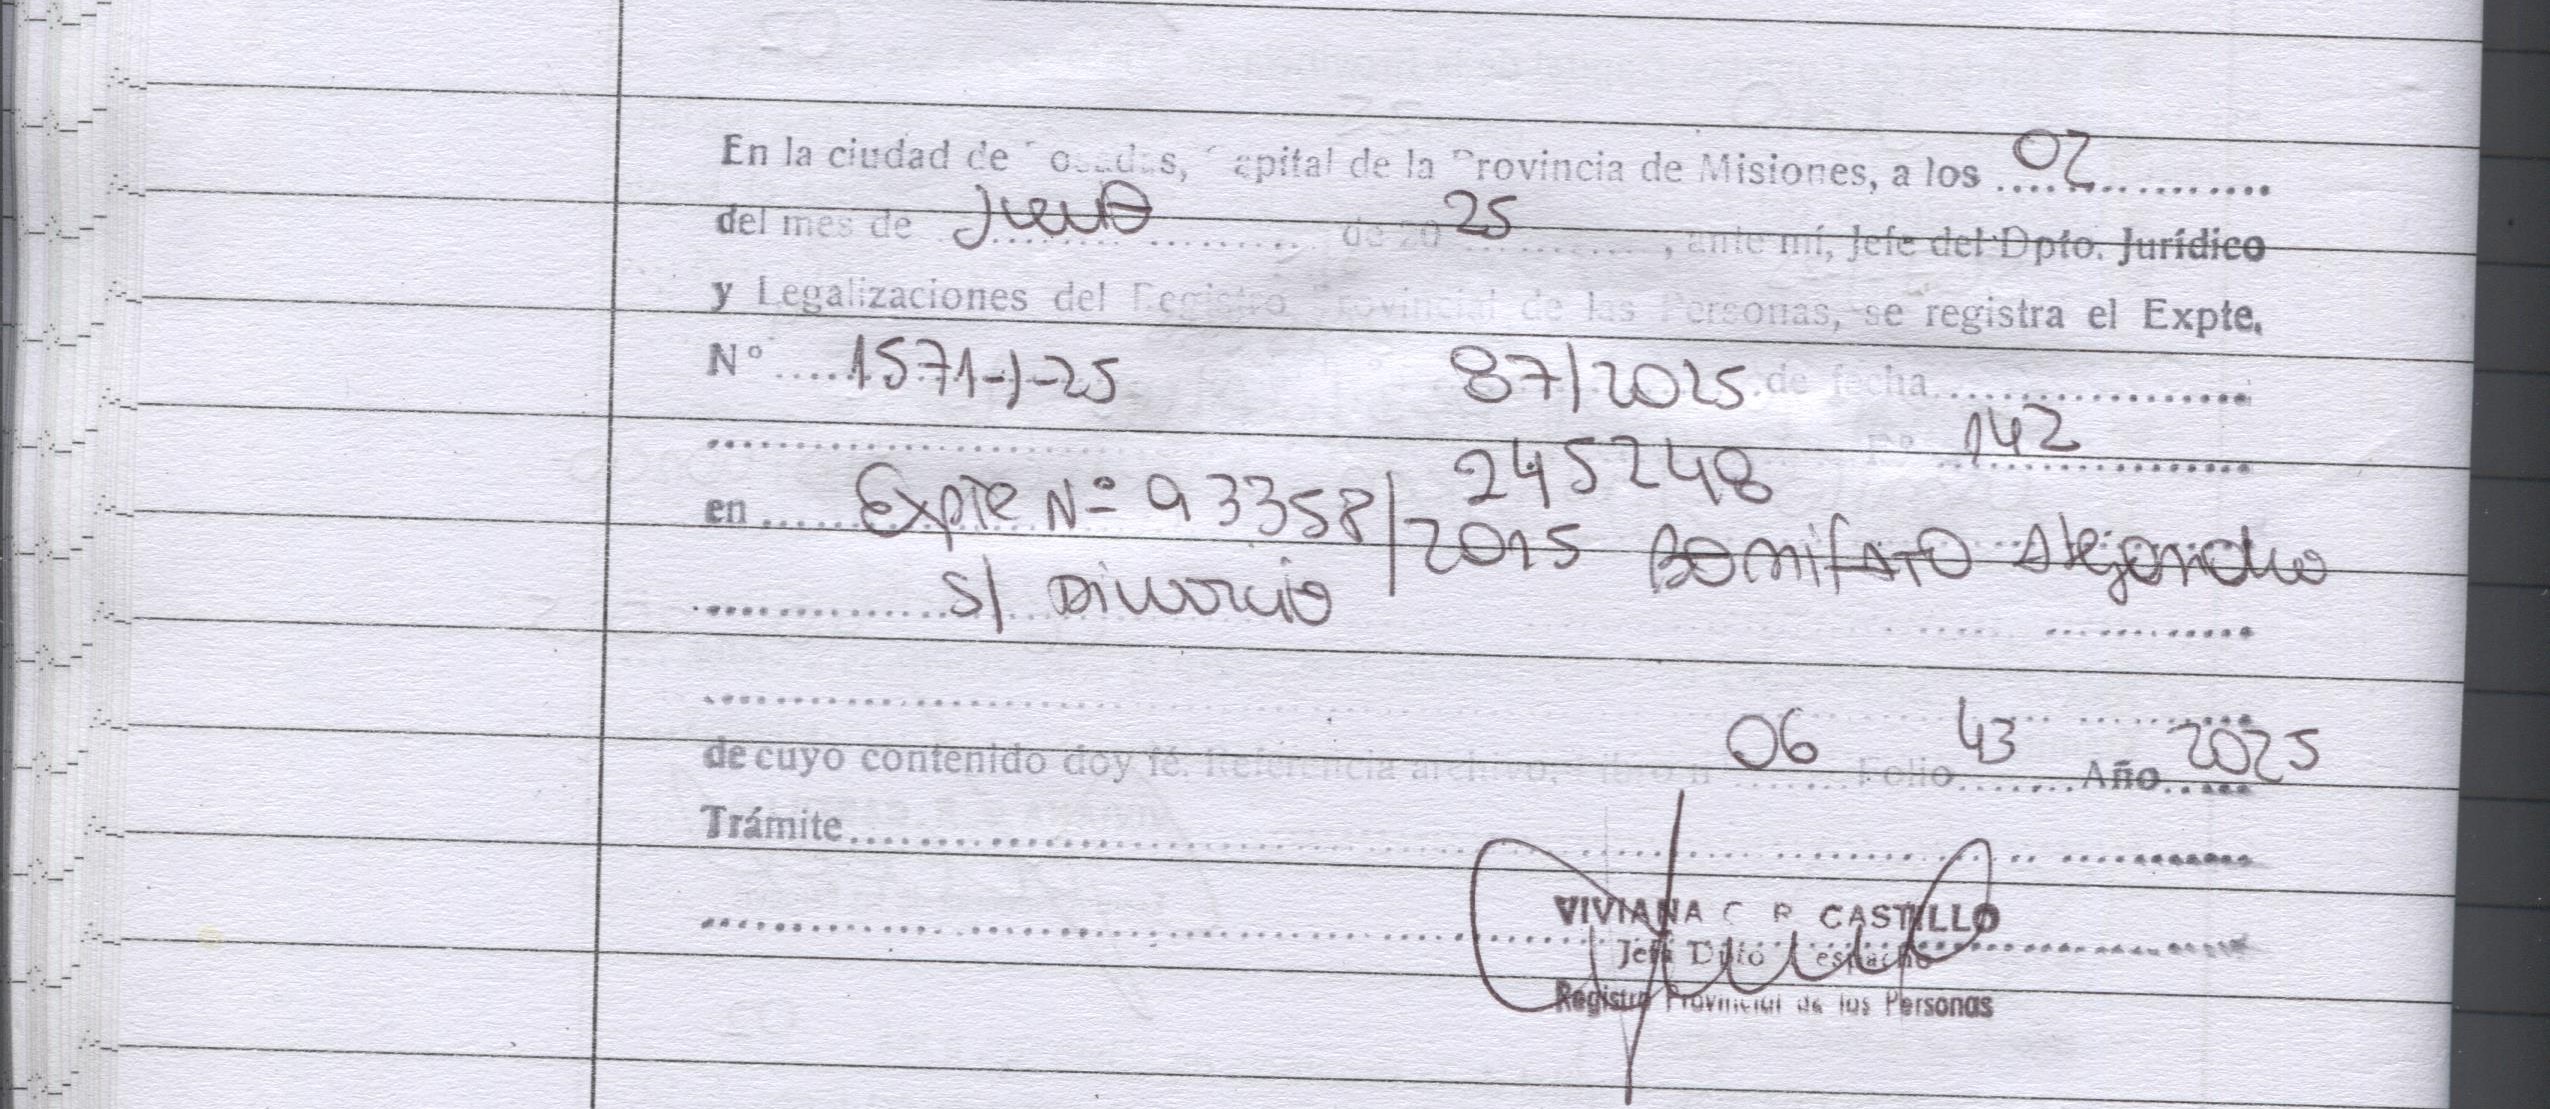 En la ciudad de Posadas, Capital de la Provincia de Misiones, a los 02
del mes de Junio de 20 25, ante mí, Jefe del Dpto. Jurídico
y Legalizaciones del Registro Provincial de las Personas, se registra el Expte.
Nº 1571-J-25 87/2025 de fecha
245248 Fº 142
en Expte Nº 93358/2015 Bonifato Alejandro
s/ Divorcio
de cuyo contenido doy fé. Referencia archivo, Libro n 06 Folio 43 Año 2025
Trámite
VIVIANA C. R. CASTILLO
Jefa Dpto Despacho
Registro Provincial de las Personas